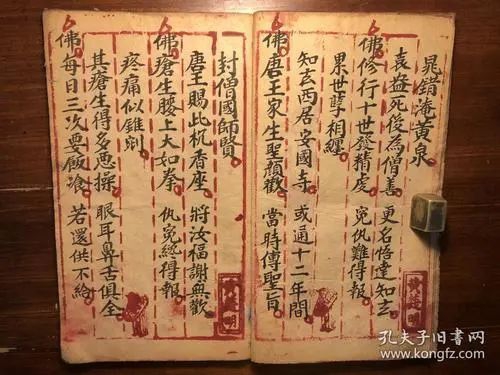 晁錯淹黄泉
袁盎死後為僧善 更名悟達知玄
佛修行十世發精虔 寃仇難得報
累世孽相纏
知玄西居安國寺 或通十二年間
佛唐王家生聖顏歡 當時傳聖旨
封僧國師賢
唐王賜此杌香座 將汝福謝與歡
佛瘡生腰上大如拳 仇寃總得報
疼痛似錐剜
其瘡生得多悪操 眼耳鼻舌俱全
佛每日三次要飯飡 若還供不給
孔夫子旧书网
www.kongfz.com